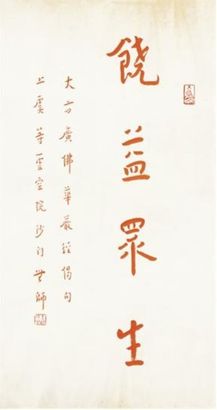 饒益眾生
大方廣佛華嚴經偈句
上虞等雲室院沙門無師